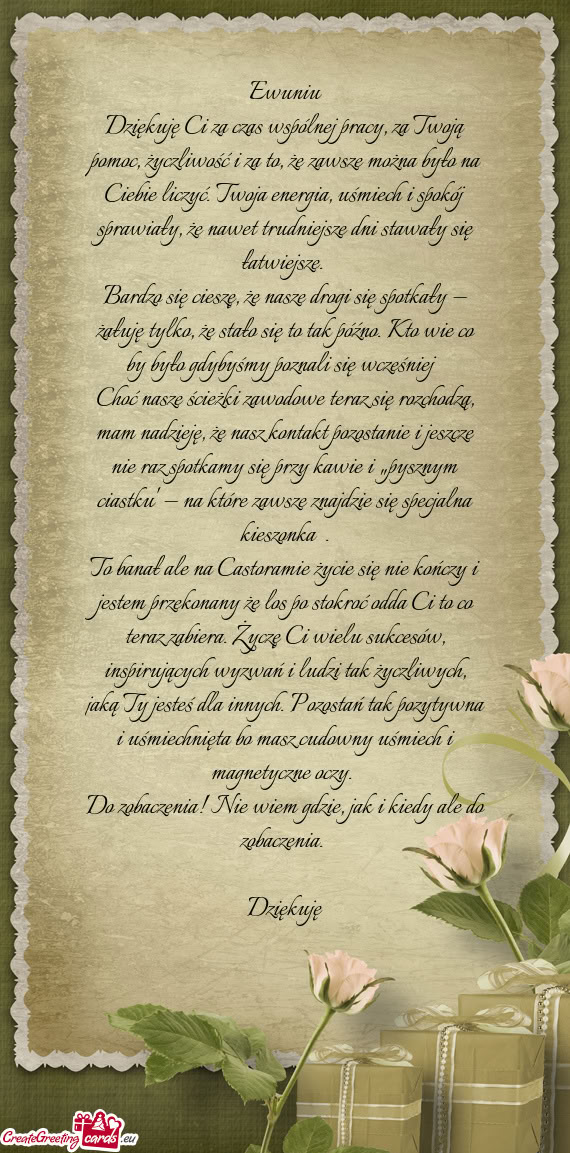 Ewuniu
Dziękuję Ci za czas wspólnej pracy, za Twoją
pomoc, życzliwość i za to, że zawsze można było na
Ciebie liczyć. Twoja energia, uśmiech i spokój
sprawiały, że nawet trudniejsze dni stawały się
łatwiejsze.
Bardzo się cieszę, że nasze drogi się spotkały –
żałuję tylko, że stało się to tak późno. Kto wie co
by było gdybyśmy poznali się wcześniej
Choć nasze ścieżki zawodowe teraz się rozchodzą,
mam nadzieję, że nasz kontakt pozostanie i jeszcze
nie raz spotkamy się przy kawie i „pysznym
ciastku' – na które zawsze znajdzie się specjalna
kieszonka .
To banał ale na Castoramie życie się nie kończy i
jestem przekonany że los po stokroć odda Ci to co
teraz zabiera. Życzę Ci wielu sukcesów,
inspirujących wyzwań i ludzi tak życzliwych,
jaką Ty jesteś dla innych. Pozostań tak pozytywna
i uśmiechnięta bo masz cudowny uśmiech i
magnetyczne oczy.
Do zobaczenia! Nie wiem gdzie, jak i kiedy ale do
zobaczenia.
Dziękuję
CreateGreeting cards .eu